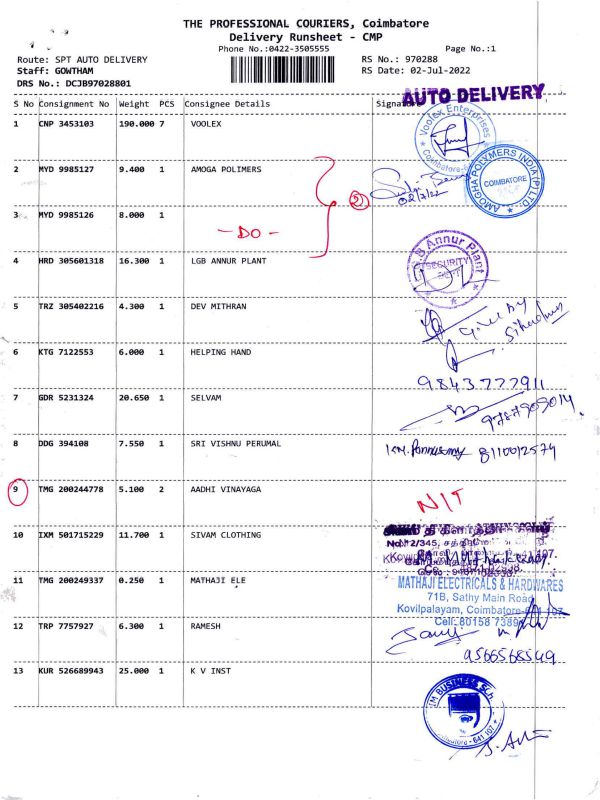 THE PROFESSIONAL COURIERS, Coimbatore
Delivery Runsheet - CMP
Phone No.:0422-3505555
Page No.:1
Route: SPT AUTO DELIVERY
RS No.: 970288
Staff: GOWTHAM
RS Date: 02-Jul-2022
DRS No.: DCJB97028801
AUTO DELIVERY
S No Consignment No Weight PCS Consignee Details Signature
1 CNP 3453103 190.000 7 VOOLEX
Voolex Enterprises
2 MYD 9985127 9.400 1 AMOGA POLIMERS
AMOGHA POLYMERS INDIA (P) LTD.
COIMBATORE
02/7/22
2
3 MYD 9985126 8.000 1
- DO -
4 HRD 305601318 16.300 1 LGB ANNUR PLANT
Annur Plant
SECURITY
5 TRZ 305402216 4.300 1 DEV MITHRAN
6 KTG 7122553 6.000 1 HELPING HAND
9843777911
7 GDR 5231324 20.650 1 SELVAM
8 DDG 394108 7.550 1 SRI VISHNU PERUMAL
8110012574
9 TMG 200244778 5.100 2 AADHI VINAYAGA
N/T
10 IXM 501715229 11.700 1 SIVAM CLOTHING
11 TMG 200249337 0.250 1 MATHAJI ELE
MATHAJI ELECTRICALS & HARDWARES
71B, Sathy Main Road
Kovilpalayam, Coimbatore-641 107
12 TRP 7757927 6.300 1 RAMESH
9566568549
13 KUR 526689943 25.000 1 K V INST